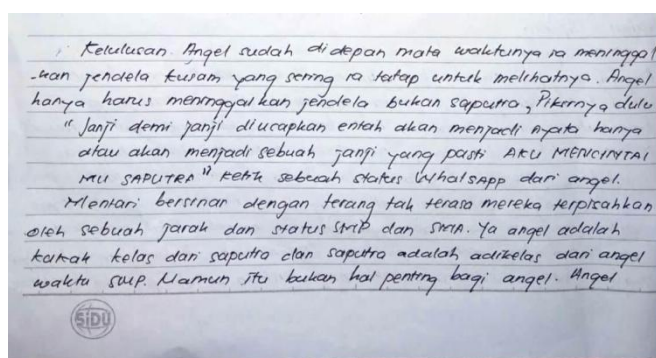 Kelulusan Angel sudah di depan mata waktunya ia meninggal
-kan jendela kusam yang sering ia tatap untuk melihatnya. Angel
hanya harus meninggalkan jendela bukan saputra, Pikirnya dulu
" Janji demi janji diucapkan entah akan menjadi nyata hanya
atau akan menjadi sebuah janji yang pasti AKU MENCINTAI
MU SAPUTRA " ketik sebuah status WhatsApp dari angel.
Mentari bersinar dengan terang tak terasa mereka terpisahkan
oleh sebuah jarak dan status SMP dan SMA. Ya angel adalah
kakak kelas dari saputra dan saputra adalah adikelas dari angel
waktu SMP. Namun itu bukan hal penting bagi angel. Angel
SIDU